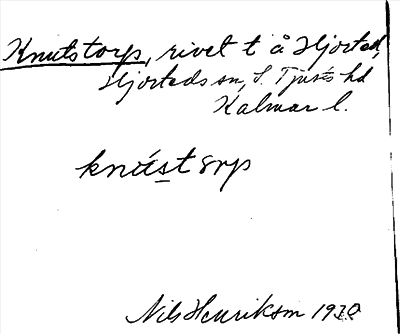 Knutstorp, rivet t å Hjorted,
Hjorteds sn, S. Tjusts hd
Kalmar l.
knústorp
Nils Henrikson 1930